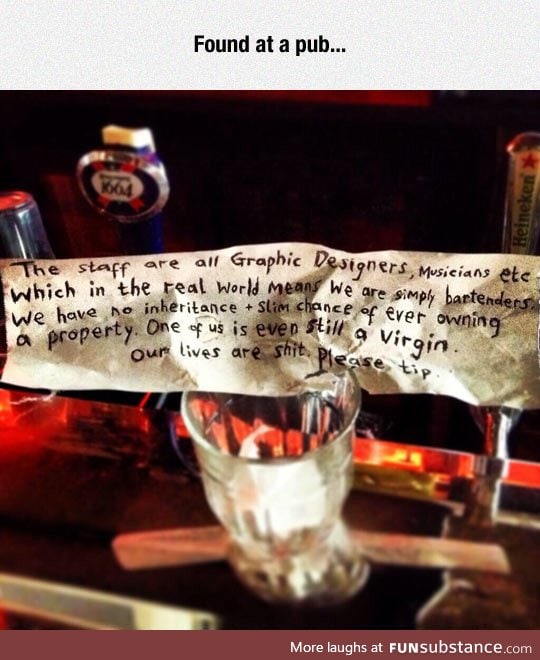 Found at a pub...
1664
Heineken
The staff are all Graphic Designers, Musicians etc
Which in the real world means we are simply bartenders.
We have no inheritance + slim chance of ever owning
a property. One of us is even still a Virgin.
Our lives are shit. Please tip.
More laughs at FUNsubstance.com